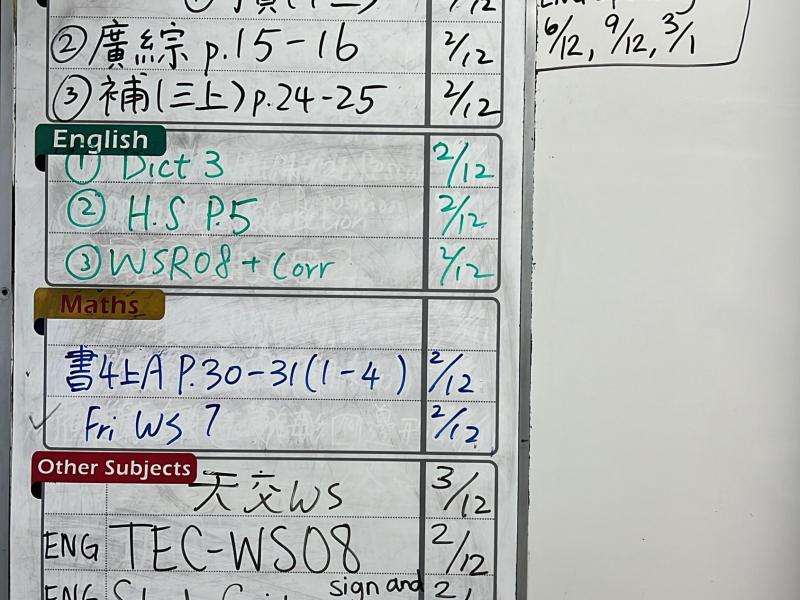 2/12
② 廣綜 p.15-16 2/12
③ 補(三上) p.24-25 2/12
6/12, 9/12, 3/1
English
① Dict 3 2/12
② H.S P.5 2/12
③ WSR08 + Corr 2/12
Maths
書4上A P.30-31(1-4) 2/12
Fri WS 7 2/12
Other Subjects
天交WS 3/12
ENG TEC-WS08 2/12
ENG sign and